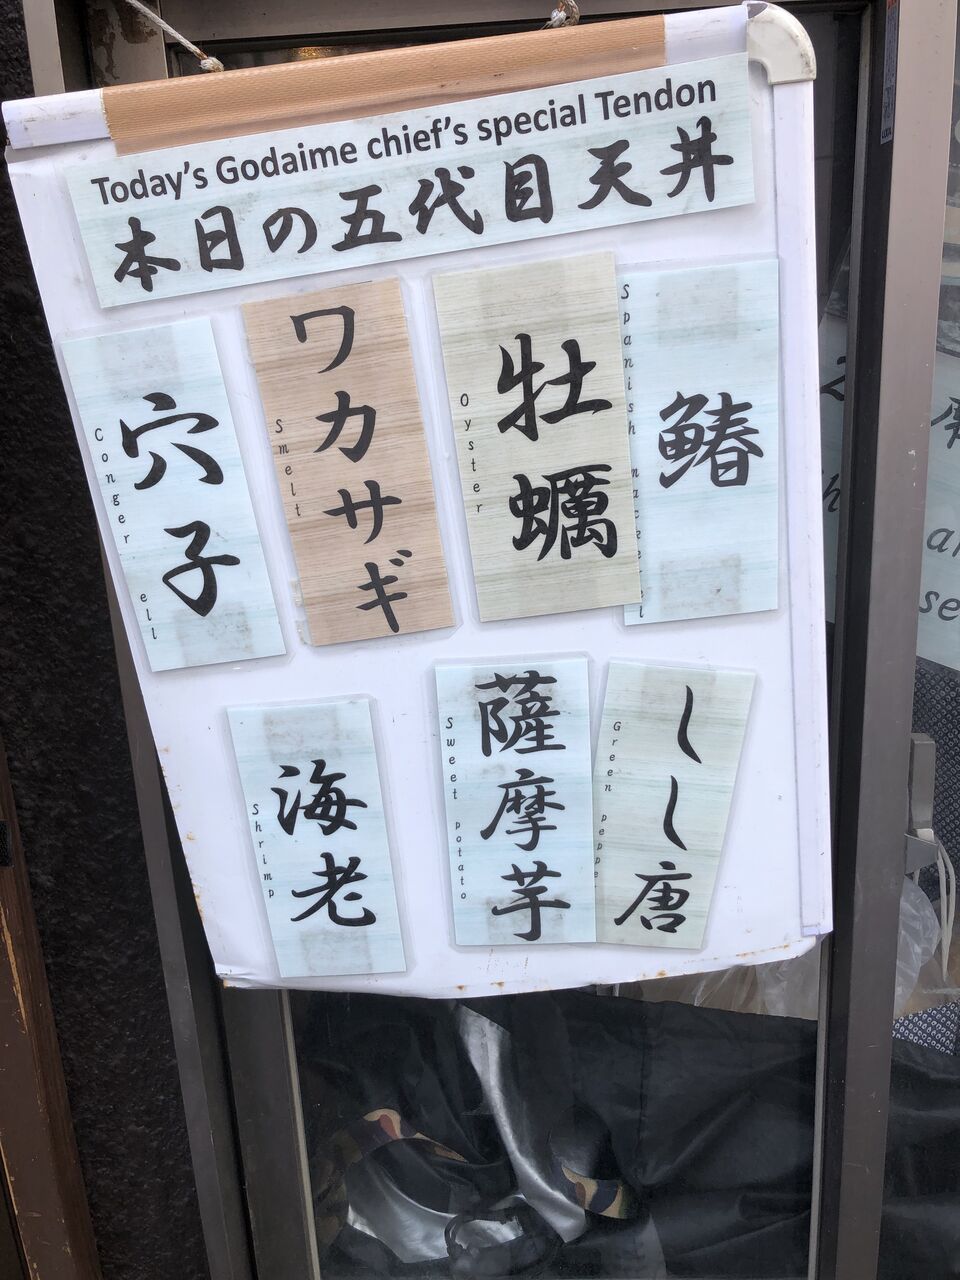 Today's Godaime chief's special Tendon
本日の五代目天丼
穴子
Conger ell
ワカサギ
Smelt
牡蠣
Oyster
鰆
Spanish
海老
Shrimp
薩摩芋
Sweet potato
しし唐
Green peppe